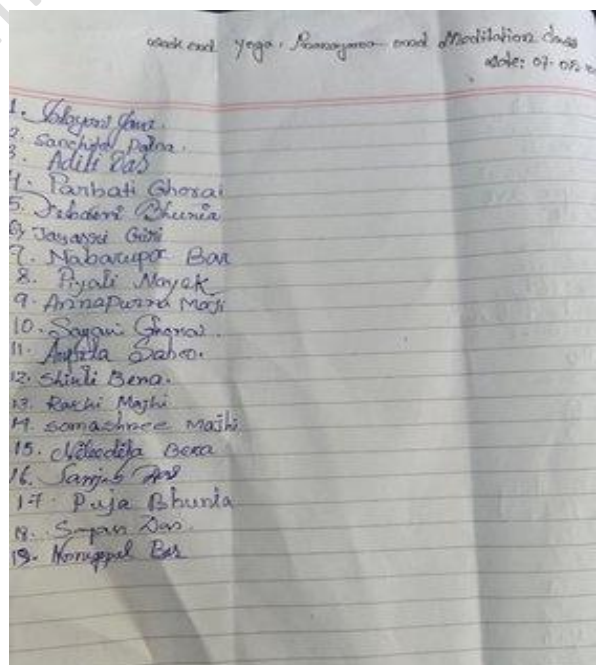 week end yoga, Pranayama and Meditation class
Date: 07-08-
1. Jana
2. Sanchita Patra.
3. Aditi Das
4. Parbati Ghorai
5. Bhunia
6. Jayasri Giri
7. Nabarupa Bar
8. Piyali Nayek
9. Annapurna Maji
10. Sayani Ghorai.
11. Sahoo.
12. Shiuli Bera.
13. Rakhi Majhi
14. Somashree Majhi
15. Nibedita Bera
16. Das
17. Puja Bhunia
18. Das.
19. Bar